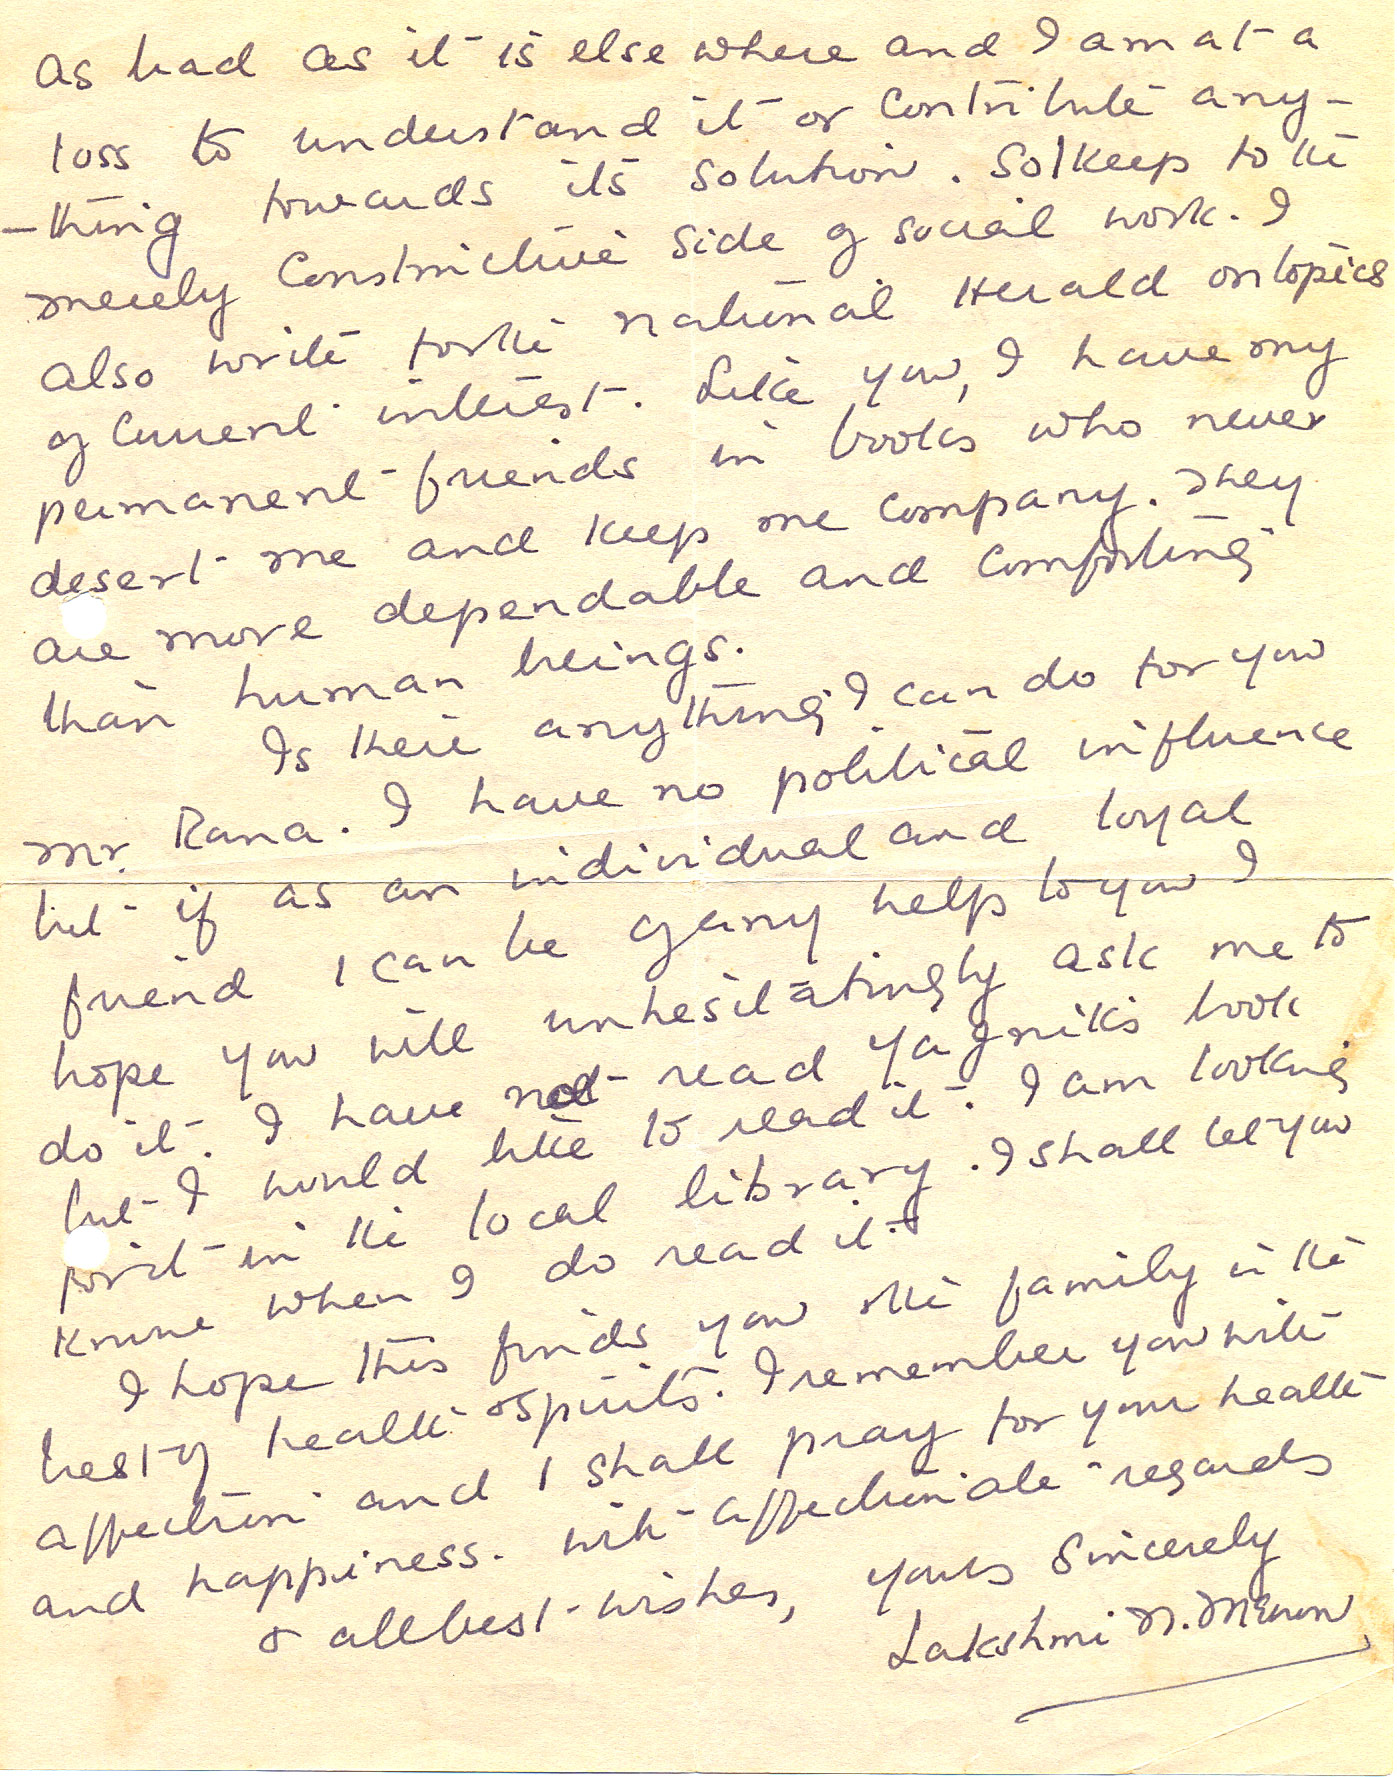 as bad as it is elsewhere and I am at a
loss to understand it or contribute any-
-thing towards its solution. So I keep to the
merely constructive side of social work. I
also write for the National Herald on topics
of current interest. Like you, I have my
permanent friends in books who never
desert me and keep me company. They
are more dependable and comforting
than human beings.
Is there anything I can do for you
Mr. Rana. I have no political influence
but if as an individual and loyal
friend I can be of any help to you I
hope you will unhesitatingly ask me to
do it. I have not read Yagnik's book
but I would like to read it. I am looking
for it in the local library. I shall let you
know when I do read it.
I hope this finds you & the family in the
best of health & spirits. I remember you with
affection and I shall pray for your health
and happiness. With affectionate regards
& all best wishes, yours sincerely
Lakshmi N. Menon